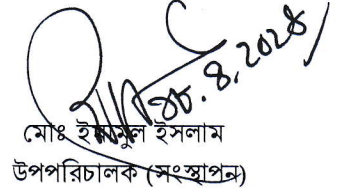 ২৮.৪.২০২৪
মোঃ ইমামুল ইসলাম
উপপরিচালক (সংস্থাপন)